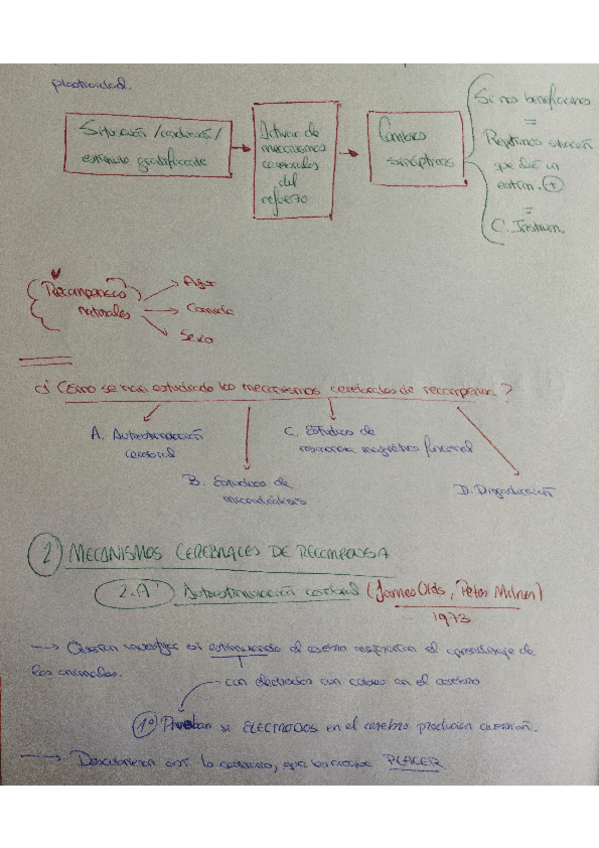 plasticidad.
Situación / conducta /
estímulo gratificante
Activar de
mecanismos
cerebrales
del
refuerzo
Cambios
sinápticos
Si nos beneficiamos
=
Repetimos situación
que dió un
estím. +
=
C. Instrum.
Recompensas
naturales
Agua
Comida
Sexo
¿Cómo se han estudiado los mecanismos cerebrales de recompensa?
A. Autoestimulación
cerebral
C. Estudios de
resonancia magnética funcional
B. Estudios de
microdiálisis
D. Drogadicción
2 MECANISMOS CEREBRALES DE RECOMPENSA
2.A Autoestimulación cerebral (James Olds, Peter Milner)
1973
Querían investigar si estimulando el cerebro mejoraban el aprendizaje de
los animales.
con electrodos con cables en el cerebro
1º Prueban si ELECTRODOS en el cerebro producían aversión.
Descubrieron lo contrario, que les producía PLACER